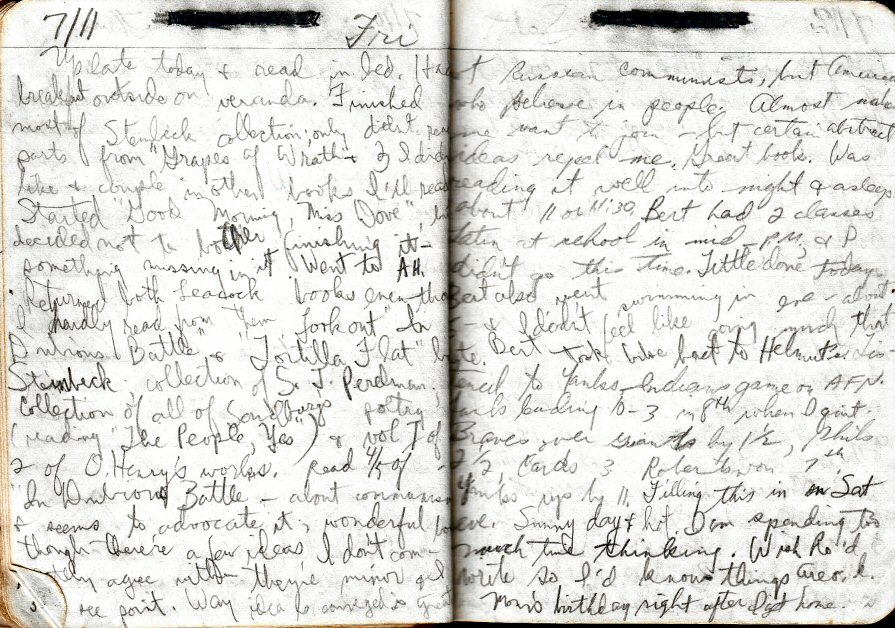 7/11 Fri
Up late today & read in bed. Had
breakfast outside on veranda. Finished
most of Steinbeck collection; only didn't read
parts from "Grapes of Wrath" & I didn't
like & couple in other books I'll read
Started "Good Morning, Miss Dove",
decided not to bother finishing it -
something missing in it. Went to AH.
Returned both Leacock books even tho
I hardly read from them & took out "In
Dubious Battle" & "Tortilla Flat" by
Steinbeck, collection of S. J. Perelman,
collection of all of Sandburg's poetry
(reading "The People, Yes") & vol I of
2 of O. Henry's works. Read 4/5 of -
"In Dubious Battle - about communism
& seems to advocate it; wonderful
though there're a few ideas I don't com-
pletely agree with - they're minor
see point. Way idea is conveyed is great
not Russian communists, but American
who believe in people. Almost makes
me want to join - but certain abstract
ideas repel me. Great book. Was
reading it well into night & asleep
about 11 or 11:30. Bert had 2 classes
later at school in mid-p.m. & I
didn't go this time. Little done today.
Bert also went swimming in eve - about
& I didn't feel like doing much that
Bert took bike back to Helmut's. Lis-
tened to Yanks-Indians game on AFN.
Yanks leading 10-3 in 8th when I quit.
Braves over Giants by 1 1/2, Phils
2 1/2, Cards 3 won 7th
Yanks up by 11. Filling this in on Sat
eve. Sunny day & hot. I am spending too
much time thinking. Wish Ro'd
write so I'd know things are o.k.
Mom's birthday right after I get home.